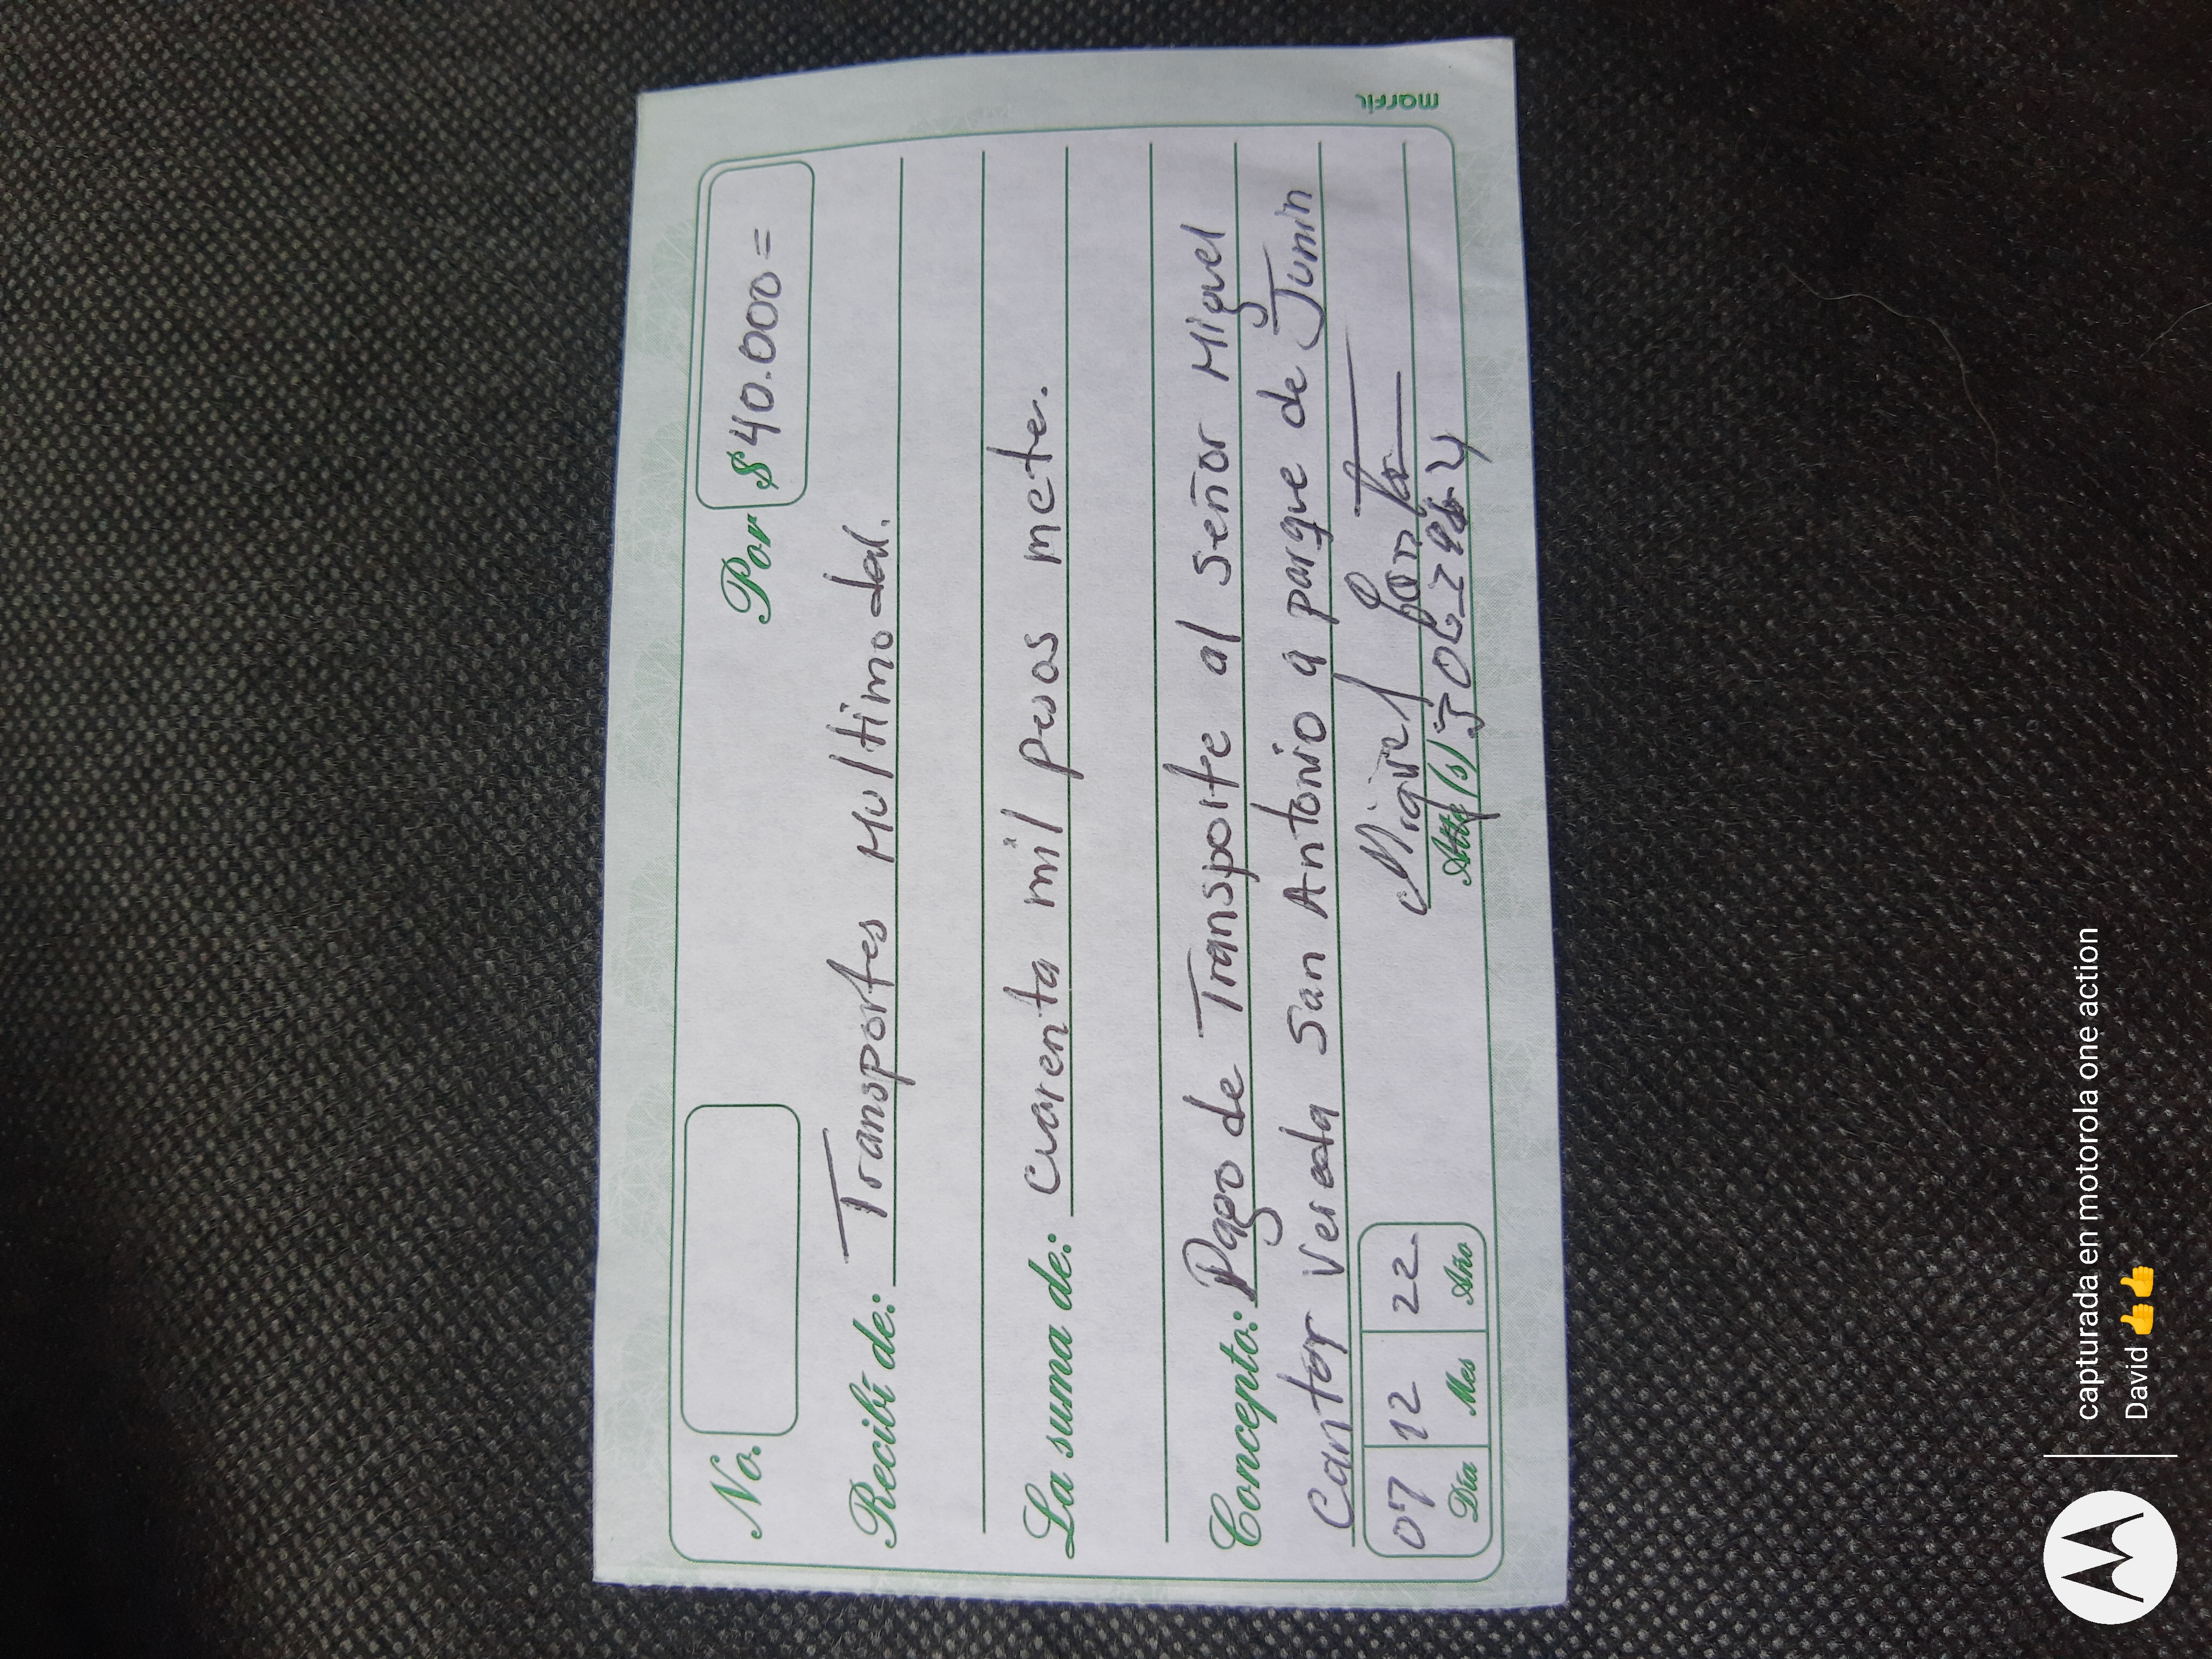 No.
Por $ 40.000=
Recibí de: Transportes Multimodal.
La suma de: Cuarenta mil pesos mcte.
Concepto: Pago de Transporte al señor Miguel
Cantor Vereda San Antonio a parque de Junin
07 12 22
Día Mes Año
Miguel
Atto (s)
marfil
capturada en motorola one action
David 👍👍